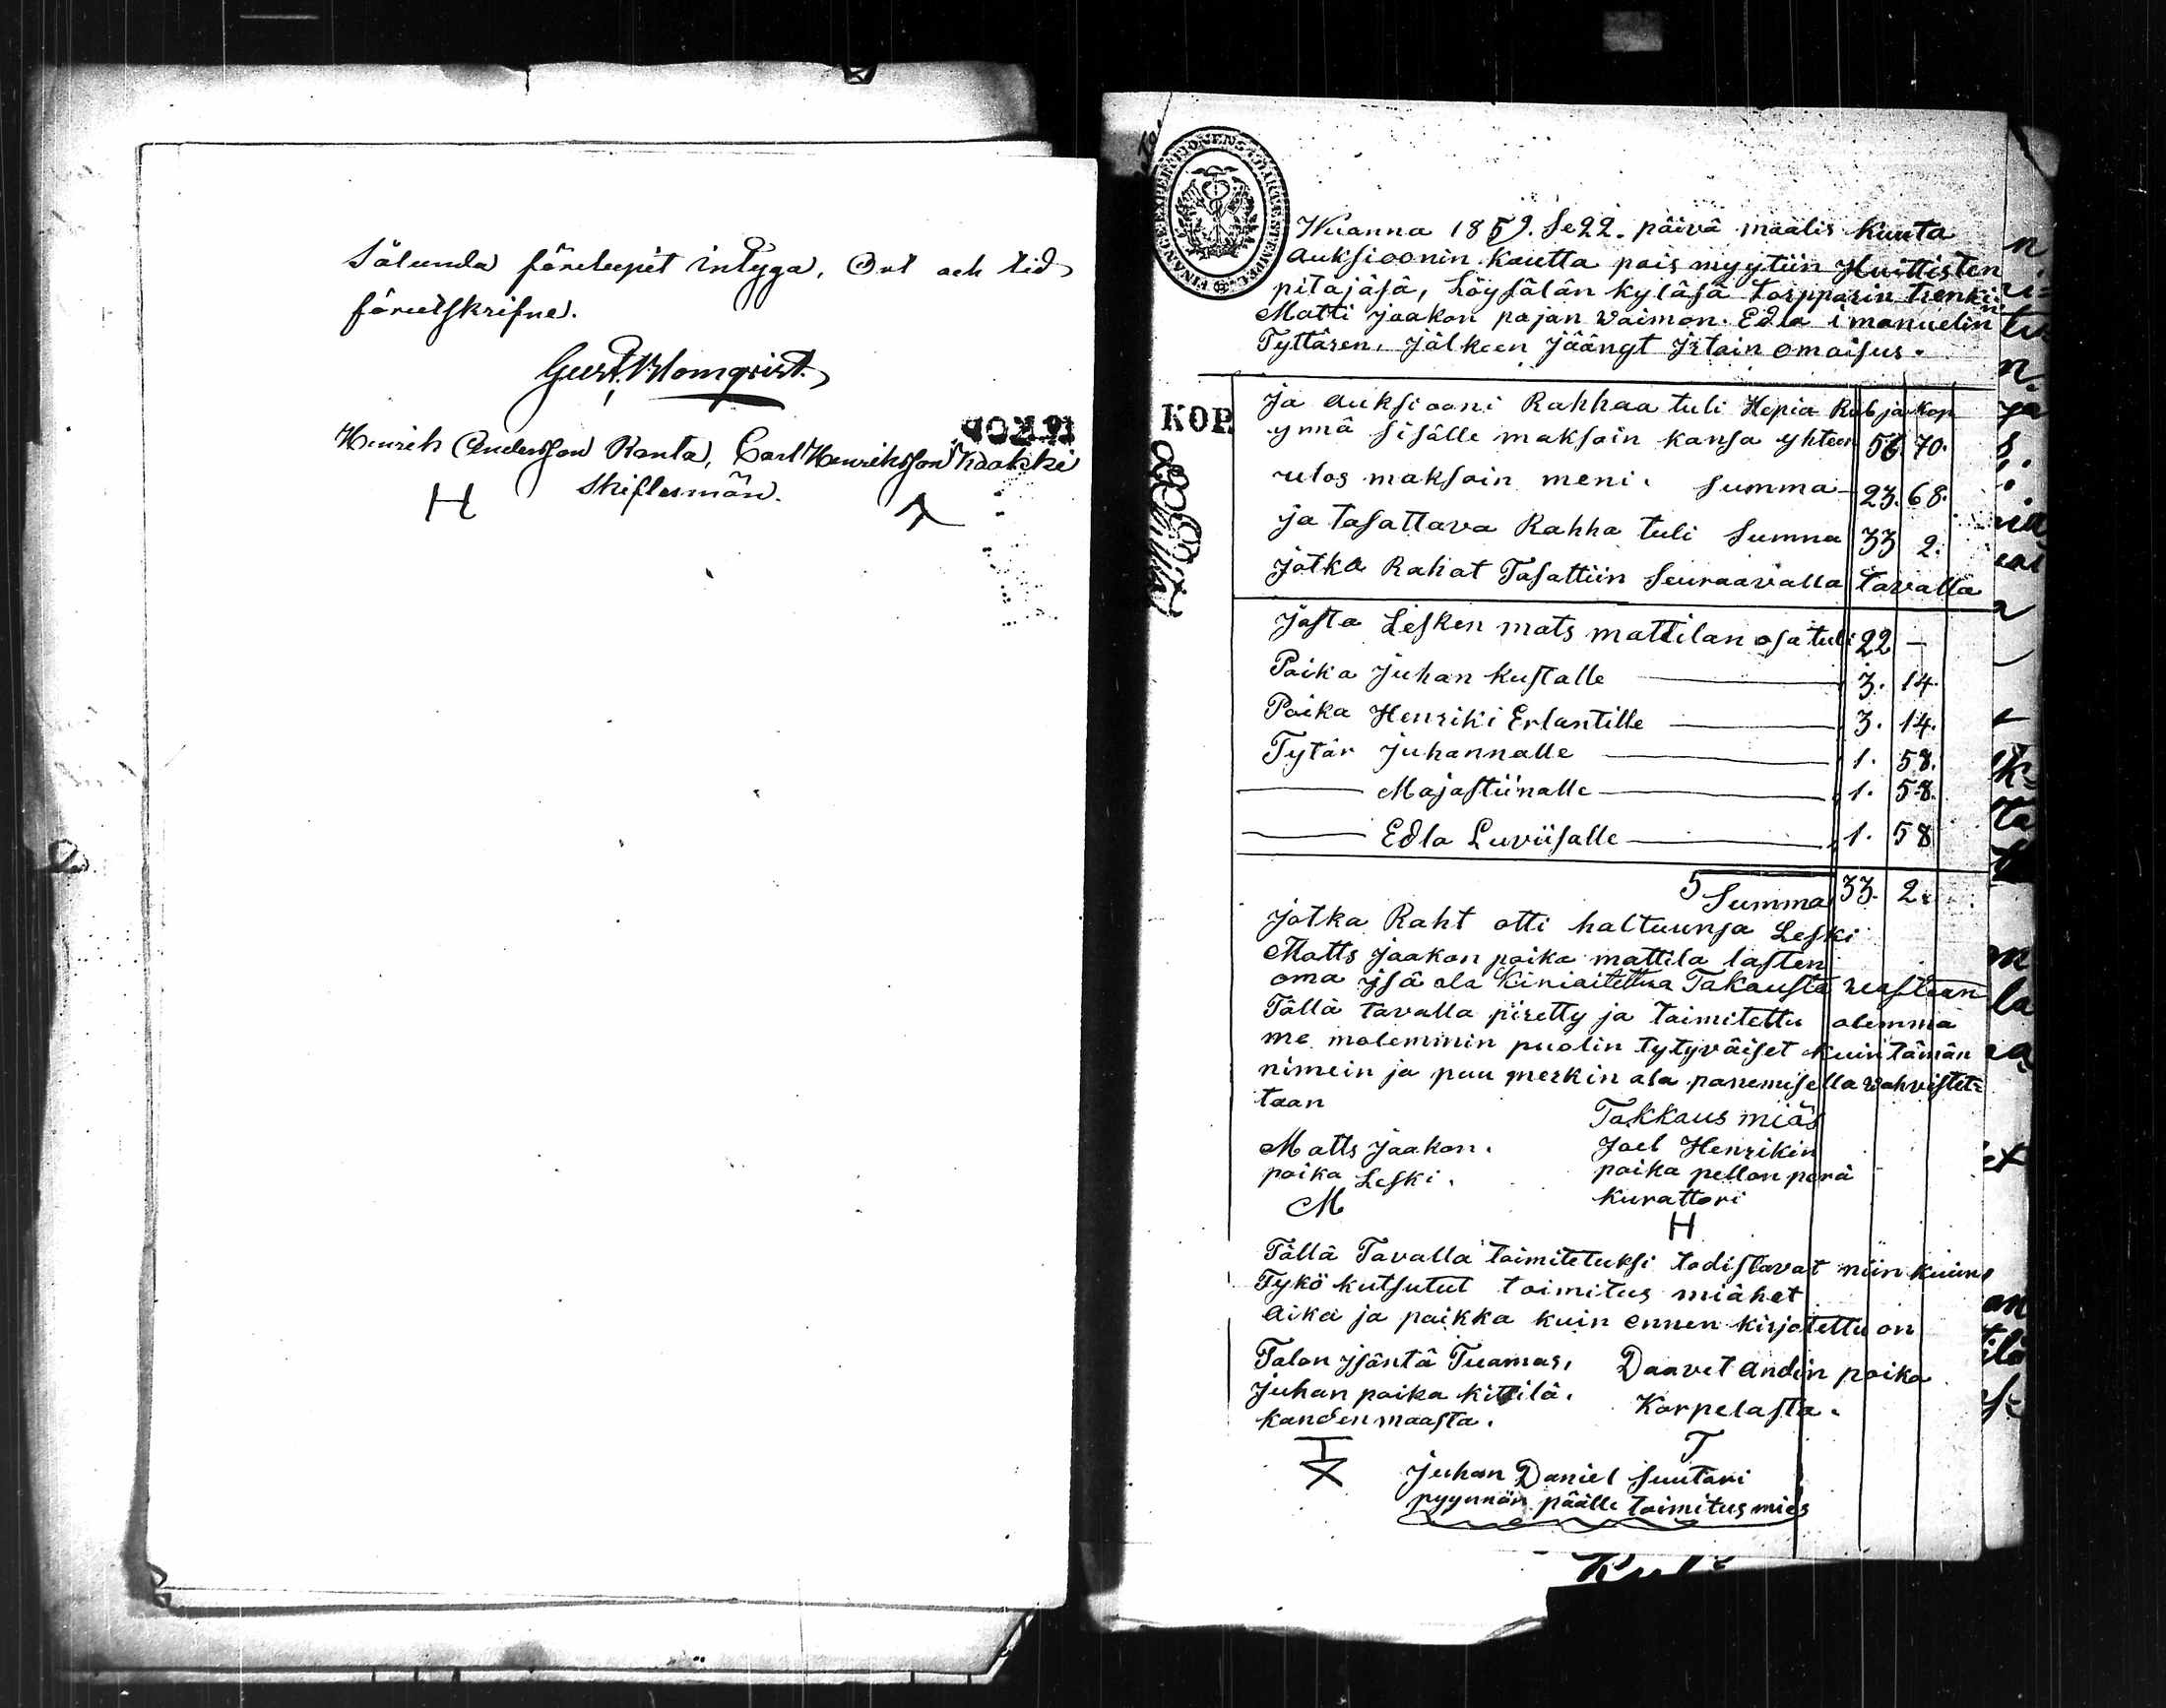 Sålunda förelupit intyga, Ort och tid
förutskrifne.
Gust. Blomqvist.
Henrik Andersson Ranta, Carl Henriksson Kaakki
H Skiftesmän.
KOP.
Wuanna 1859. Se 22. päivä maalis kuuta
auksioonin kautta pois myytiin Huittisten
pitäjäsä, Löysälän kyläsä torpparin trenki
Matti jaakon pojan waimon. Edla imanuelin
Tyttären. jälkeen jäängt jrtain omaisus.
ja auksiooni Rahhaa tuli Hopia Rub ja kop
ynnä sisälle maksoin kansa yhteen 56. 70.
ulos maksoin meni. Summa 23. 68.
ja tasattava Rahha tuli Summa 33 2.
jotka Rahat Tasattiin Seuraavalla tavalla
josta Lesken mats mattilan osa tuli 22 —
Poika Juhan kustalle 3. 14.
Poika Henriki Erlantille 3. 14.
Tytär Juhannalle 1. 58.
Majastiinalle 1. 58.
Edla Luviisalle 1. 58
Summa 33. 2.
jotka Raht otti haltuunsa Leski
Matts jaakon poika mattila lasten
oma jsä ala Takausta wastaan
Tällä tavalla piretty ja taimitettu olemma
me molemmin puolin tytyväiset kuin tämän
nimein ja puu merkin ala panemisella wahvistet=
taan
Takkaus miäs
Matts jaakon. Joel Henrikin
poika Leski. poika pellon perä
M kurattori
H
Tällä Tavalla toimitetuksi todistavat niin kuin
Tykö kutsutut toimitus miähet
aika ja paikka kuin ennen kirjotettu on
Talon jsäntä Tuamas, Daavet andin poika
Juhan poika kittilä. Korpelasta.
kandenmaasta. T
Juhan Daniel Suutari
pyynnön päälle toimitus miäs